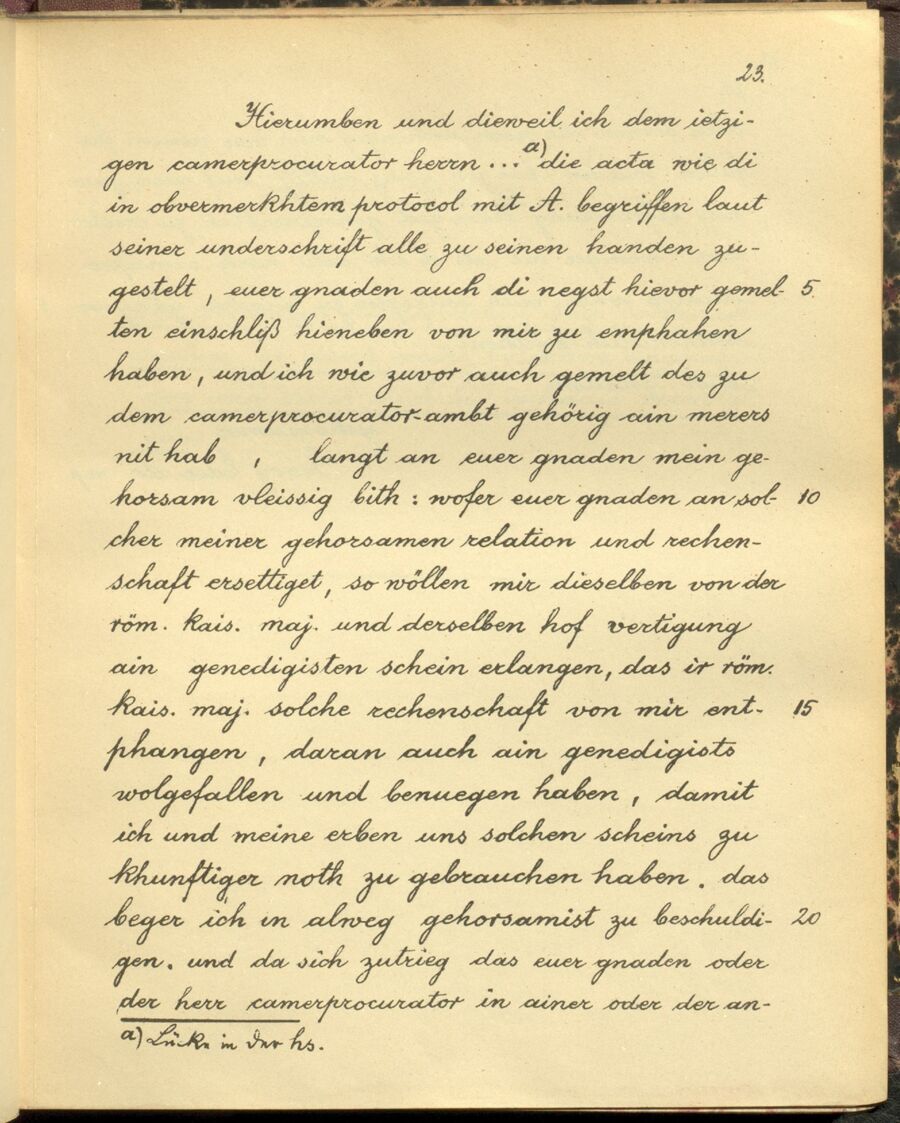 23.
Hierumben und dieweil ich dem ietzi-
gen camerprocurator herrn ... a) die acta wie di
in obvermerkhtem protocol mit A. begriffen laut
seiner underschrift alle zu seinen handen zu-
gestelt, euer gnaden auch di negst hievor gemel- 5
ten einschliß hieneben von mir zu emphahen
haben, und ich wie zuvor auch gemelt des zu
dem camerprocurator-ambt gehörig ain merers
nit hab , langt an euer gnaden mein ge-
horsam vleissig bith: wofer euer gnaden an sol- 10
cher meiner gehorsamen relation und rechen-
schaft ersettiget, so wöllen mir dieselben von der
röm. kais. maj. und derselben hof vertigung
ain genedigisten schein erlangen, das ir röm.
kais. maj. solche rechenschaft von mir ent- 15
phangen, daran auch ain genedigists
wolgefallen und benuegen haben, damit
ich und meine erben uns solchen scheins zu
khunftiger noth zu gebrauchen haben. das
beger ich in alweg gehorsamist zu beschuldi- 20
gen. und da sich zutrieg das euer gnaden oder
der herr camerprocurator in ainer oder der an-
a) Lücke in der hs.